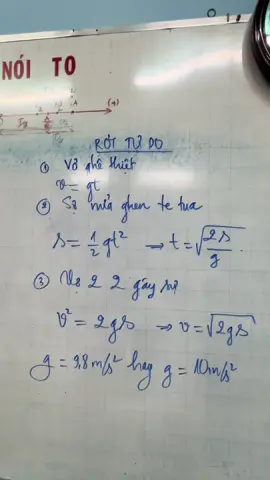 NÓI TO
(+)
RƠI TỰ DO
① Vợ ghê thiệt
v = gt
② Sợ mấy ghen te tua
s = 1/2 gt² → t = √(2s/g)
③ Vợ 2 2 gãy sợ
v² = 2gs → v = √(2gs)
g = 9,8m/s² hay g = 10m/s²